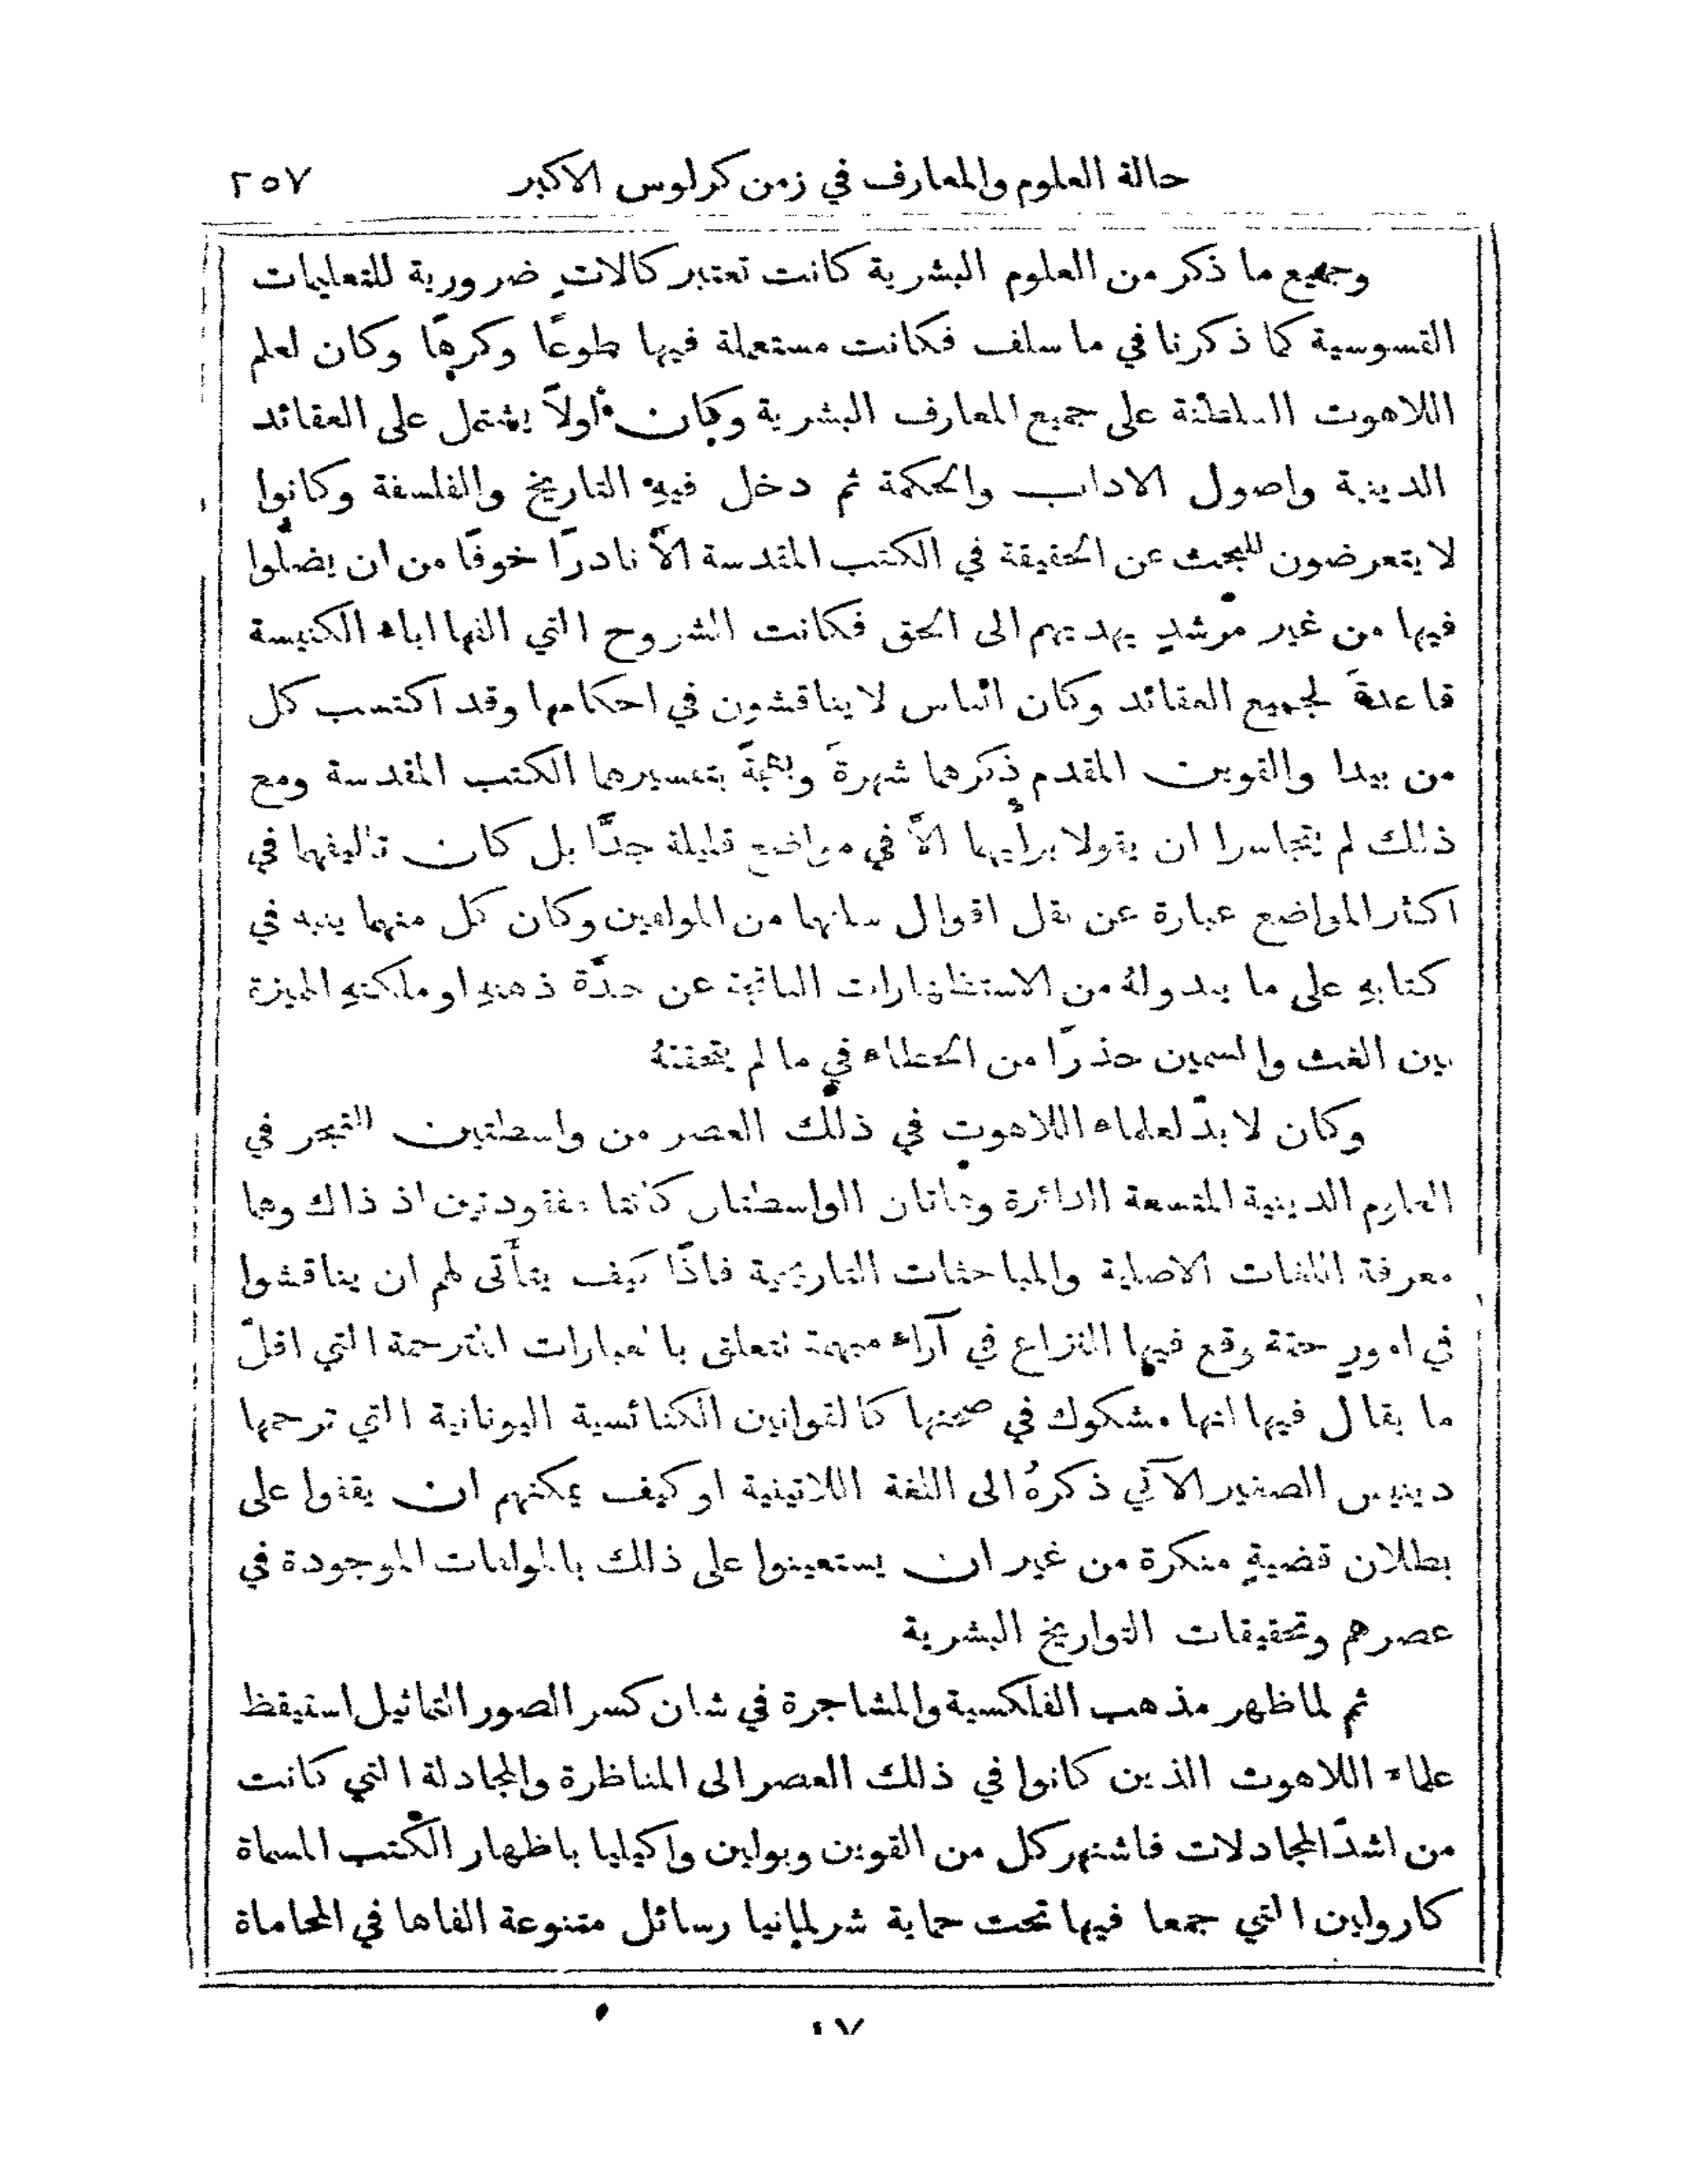 حالة العلوم والمعارف في زمن كرلوس الاكبر ٢٥٧
وجميع ما ذكر من العلوم البشرية كانت تعتبر كالات ضرورية للتعليمات
القسوسية كما ذكرنا في ما سلف فكانت مستعملة فيها طوعًا وكرهًا وكان لعلم
اللاهوت السلطنة على جميع المعارف البشرية وكان أولاً يشتمل على العقائد
الدينية واصول الاداب والحكمة ثم دخل فيهِ التاريخ والفلسفة وكانوا
لا يتعرضون للبحث عن الحقيقة في الكتب المقدسة الاَّ نادرًا خوفًا من ان يضلُّوا
فيها من غير مرشدٍ يهديهم الى الحق فكانت الشروح التي الفها اباء الكنيسة
قاعدةً لجميع العقائد وكان الناس لا يناقشون في احكامها وقد اكتسب كل
من بيدا والقوين المقدم ذكرهما شهرةً وبهجةً بتفسيرهما الكتب المقدسة ومع
ذلك لم يتجاسرا ان يقولا برأيهما الاَّ في مواضع قليلة جدًّا بل كان تاليفهما في
اكثر المواضع عبارة عن نقل اقوال سلفهما من المولفين وكان كل منهما ينبه في
كتابهِ على ما يبدو لهُ من الاستظهارات الناتجة عن حدَّة ذهنهِ او ملكتهِ المميزة
بين الغث والسمين حذرًا من الخطاء في ما لم يتحققهُ
وكان لا بدَّ لعلماء اللاهوت في ذلك العصر من واسطتين للتبحر في
العلوم الدينية المتسعة الدائرة وهاتان الواسطتان كانتا مفقودتين اذ ذاك وهما
معرفة اللغات الاصلية والمباحثات التاريخية فاذًا كيف يتأتى لهم ان يناقشوا
في امورٍ حقة وقع فيها النزاع في آراء مبهمة تتعلق بالعبارات المترجمة التي اقلّ
ما يقال فيها انها مشكوك في صحتها كالقوانين الكنائسية اليونانية التي ترجمها
دينيس الصغير الآتي ذكرهُ الى اللغة اللاتينية او كيف يمكنهم ان يقفوا على
بطلان قضيةٍ منكرة من غير ان يستعينوا على ذلك بالمولفات الموجودة في
عصرهم وتحقيقات التواريخ البشرية
ثم لما ظهر مذهب الفلكسية والمشاجرة في شان كسر الصور التماثيل استيقظ
علماء اللاهوت الذين كانوا في ذلك العصر الى المناظرة والمجادلة التي كانت
من اشدّ المجادلات فاشتهر كل من القوين وبولين واكيليا باظهار الكتب المسماة
كارولين التي جمعا فيها تحت حماية شرلمانيا رسائل متنوعة الفاها في المحاماة
١٧